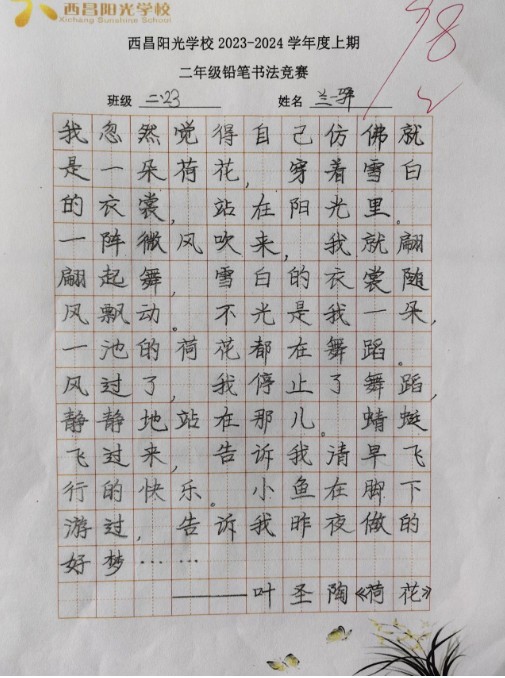 西昌阳光学校
Xichang Sunshine School
西昌阳光学校 2023-2024 学年度上期
二年级铅笔书法竞赛
98
班级 二.23 姓名
我忽然觉得自己仿佛就
是一朵荷花，穿着雪白
的衣裳，站在阳光里。
一阵微风吹来，我就翩
翩起舞，雪白的衣裳随
风飘动。不光是我一朵，
一池的荷花都在舞蹈。
风过了，我停止了舞蹈，
静静地站在那儿。蜻蜓
飞过来，告诉我清早飞
行的快乐。小鱼在脚下
游过，告诉我昨夜做的
好梦……
——叶圣陶《荷花》